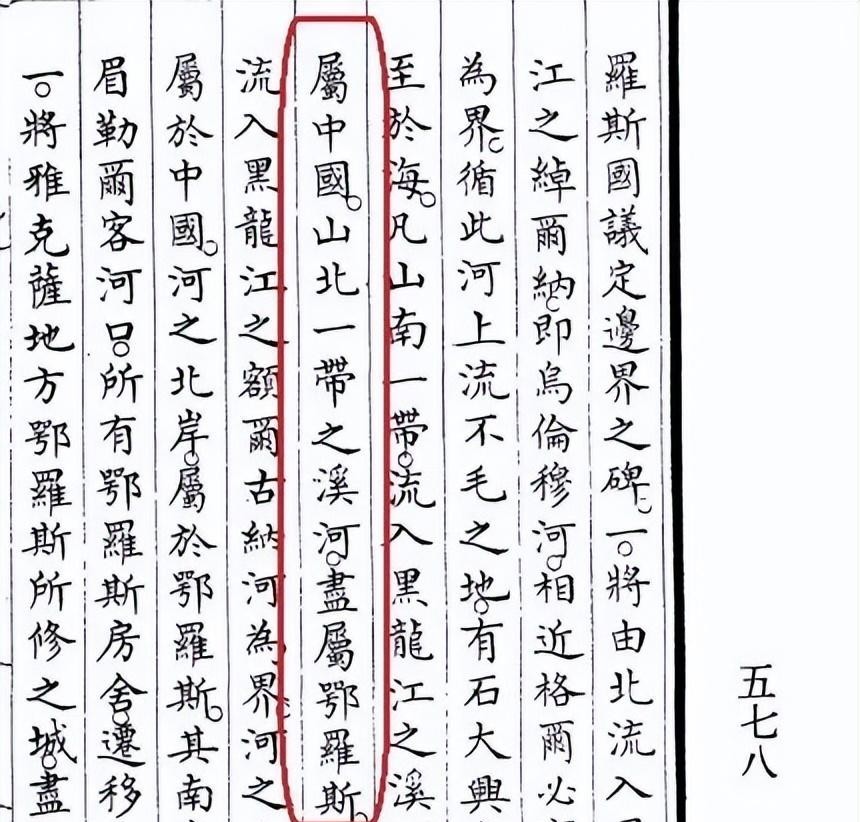 羅斯國議定邊界之碑。一。將由北流入
江之綽爾納。即烏倫穆河。相近格爾必
為界。循此河上流不毛之地。有石大興
至於海。凡山南一帶。流入黑龍江之溪
屬中國。山北一帶之溪河。盡屬鄂羅斯。
流入黑龍江之額爾古納河為界。河之
屬於中國。河之北岸。屬於鄂羅斯。其南
眉勒爾客河口。所有鄂羅斯房舍。遷移
一。將雅克薩地方鄂羅斯所修之城。盡
五七八